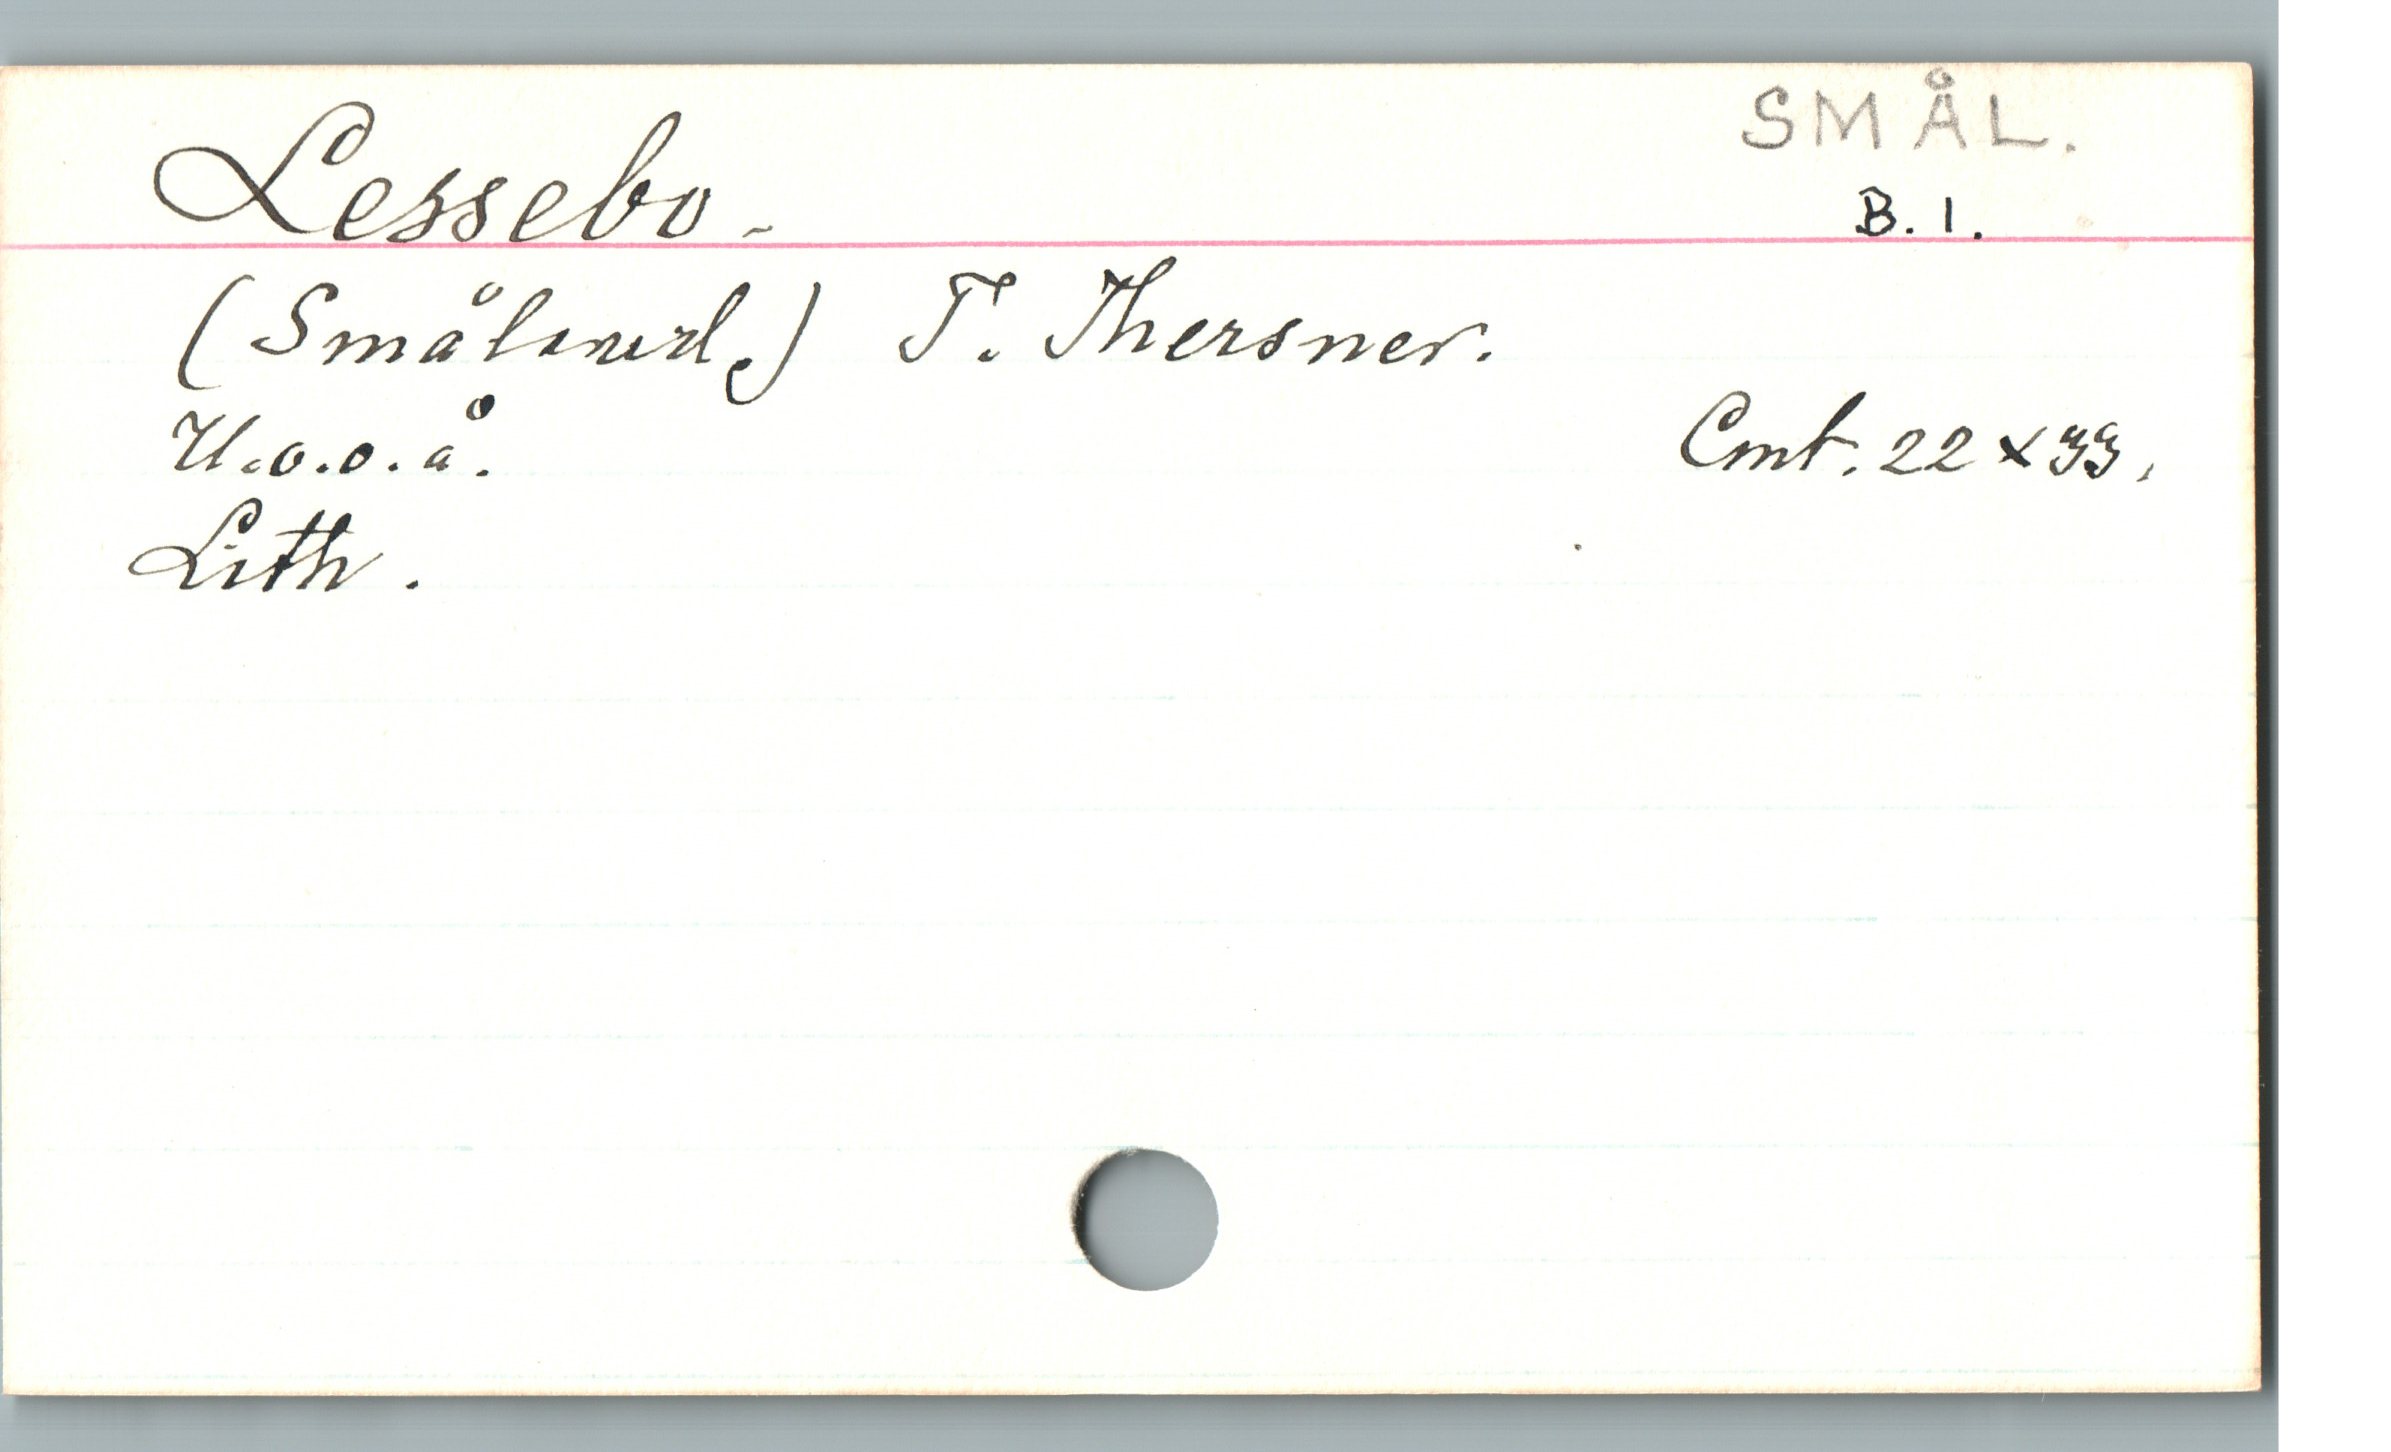 SMÅL.
Lessebo.
B. 1.
(Småland.) T. Thersner.
U.o.o.å.
Cmt. 22 x 33.
Lith.